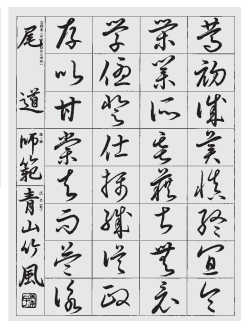 篤初誠美慎終宜令
榮業所基籍甚無竟
學優登仕攝職從政
存以甘棠去而益詠
尾道 師範 青山竹風